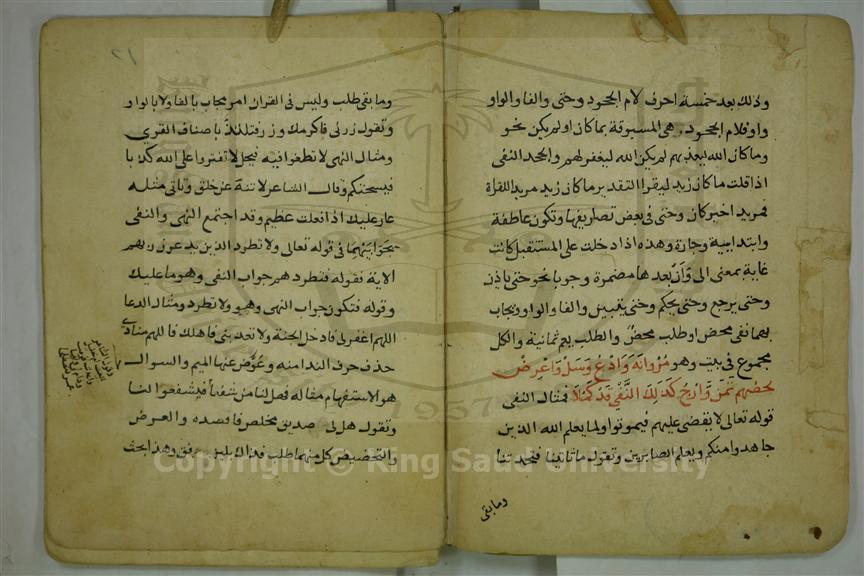 وذلك بعد خمسة احرف لام الجحود وحتى والفا والواو
واو فلام الجحود. هي المسبوقة بما كان او لم يكن نحو
وما كان الله ليعذبهم لم يكن الله ليغفر لهم والجحد النفي
اذا قلت ما كان زيد ليقرا التقدير ما كان زيد مريد للقراة
فمريد اخبر كان وحتى في بعض تصاريفها وتكون عاطفة
وابتدايية وجارة وهذه اذا دخلت على المستقبل كانت
غاية بمعنى الى وَاَنْ بعدها مضمرة وجوبا نحو حتى ياذن
وحتى يرجع وحتى يحكم وحتى يتبين والفا والواو ويجاب
بهما نفي محض او طلب محضٌ والطلب يعم ثمانية والكل
مجموع في بيت وهو مُرْ وانْهَ وَادْعُ وَسَلْ وَاعْرِضْ
لحضهم تَمَنَّ وَارْجُ كَذَلكَ النَّفْي قَدْ كَمُلَا فمثال النفي
قوله تعالى لا يقضى عليهم فيموتوا ولما يعلم الله الذين
جاهدوا منكم ويعلم الصابرين وتقول ما تاتينا فتحدثنا
وما بقى
٢١
وما بقي طلب وليس في القران امر مجاب بالفا ولا بالواو
وتقول زرني فاكرمك وزر فتلتذ باصناف القري
ومثال النهي لا تطغوا فيه فيحل لا تفتروا على الله كذبا
فيسحتكم وقال الشاعر لا تنه عن خلق وتاتي مثله
عار عليك اذا فعلت عظيم وقد اجتمع النهي والنفي
بجوابيهما في قوله تعالى ولا تطرد الذين يدعون ربهم
الاية فقوله فتطردهم جواب النفي وهو ما عليك
وقوله فتكون جواب النهي وهو ولا تطرد ومثال الدعا
اللهم اغفر لي فادخل الجنة ولا تعذبني فاهلك فاللهم منادى
حذف حرف الندا منه وعُوِّض عنها الميم والسوال
هو الاستفهام مثاله فهل لنا من شفعا فيشفعوا لنا
وتقول هل لي صديق مخلص فاقصده والعرض
والتحضيض كل منهما طلب فذاك بلين ورفق وهذا بحث
Copyright © King Saud University
1957